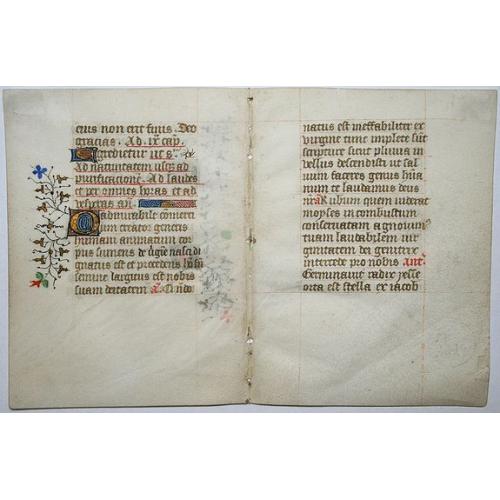 eius non erit finis. Deo
gracias. Ad ix cap.
Egredietur ut s.
Ad nativitatem usq; ad
purificacione. Ad laudes
et per omnes horas et ad
vesp̄as añ.
O admirabile comerci
um creator generis
humani animatum cor
pus sumens de v̄gine nasci di
gnatus est et procedens hō si
semine largitus est nobis
suam deitatem. a. Q̄ndo
natus est ineffabiliter ex
virgine tunc implete sūt
scripture sicut pluvia in
vellus descendisti ut sal
uum faceres genus hūa
num te laudamus deus
Rubum quem viderat
moyses in combustum
conservatam agnovim9
tuam laudabilem vir
ginitatem dei genitrix
intercede pro nobis Ant.
Germinavit radix yesse
orta est stella ex iacob